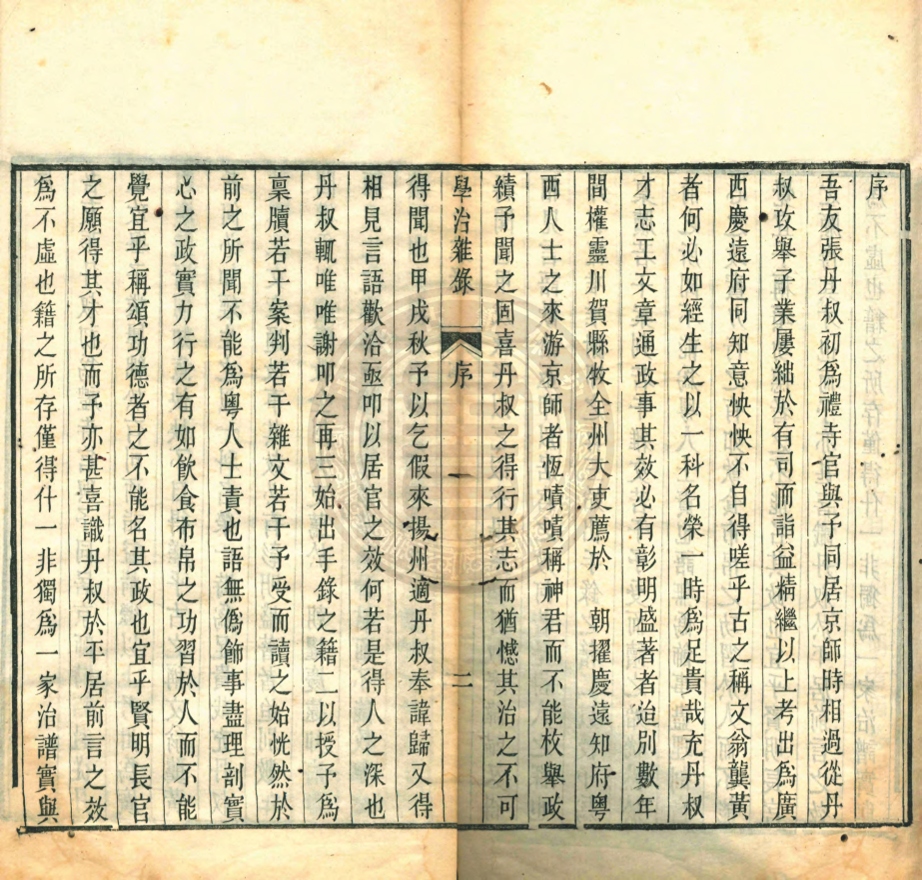 序
吾友張丹叔初爲禮寺官與予同居京師時相過從丹
叔攻舉子業屢絀於有司而詣益精繼以上考出爲廣
西慶遠府同知意怏怏不自得嗟乎古之稱文翁龔黃
者何必如經生之以一科名榮一時爲足貴哉充丹叔
才志工文章通政事其效必有彰明盛著者迨別數年
間權靈川賀縣牧全州大吏薦於 朝擢慶遠知府粵
西人士之來游京師者恆嘖嘖稱神君而不能枚舉政
績予聞之固喜丹叔之得行其志而猶憾其治之不可
學治雜錄 序 一 二
得聞也甲戌秋予以乞假來揚州適丹叔奉諱歸又得
相見言語歡洽亟叩以居官之效何若是得人之深也
丹叔輒唯唯謝叩之再三始出手錄之籍二以授予爲
稟牘若干案判若干雜文若干予受而讀之始恍然於
前之所聞不能爲粵人士責也語無僞飾事盡理剖實
心之政實力行之有如飲食布帛之功習於人而不能
覺宜乎稱頌功德者之不能名其政也宜乎賢明長官
之願得其才也而予亦甚喜識丹叔於平居前言之效
爲不虛也籍之所存僅得什一非獨爲一家治譜實與